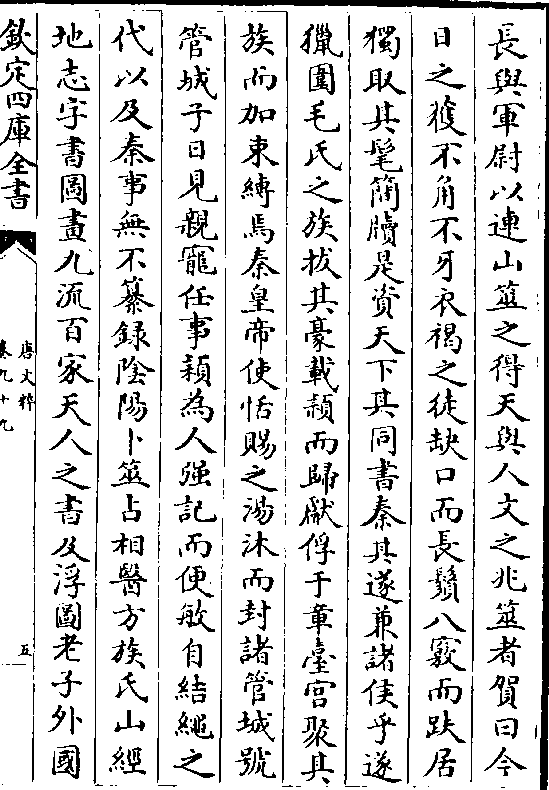 長與軍尉以連山筮之得天與人文之兆筮者賀曰今
日之獲不角不牙衣褐之徒缺口而長鬚八竅而趺居
獨取其髦簡牘是資天下其同書秦其遂兼諸侯乎遂
獵圍毛氏之族拔其豪載穎而歸獻俘于章臺宮聚其
族而加束縛焉秦皇帝使恬賜之湯沐而封諸管城號
管城子日見親寵任事穎為人强記而便敏自結繩之
代以及秦事無不纂錄陰陽卜筮占相醫方族氏山經
地志字書圖畫九流百家天人之書及浮圖老子外國
欽定四庫全書
唐文粹
卷九十九
五